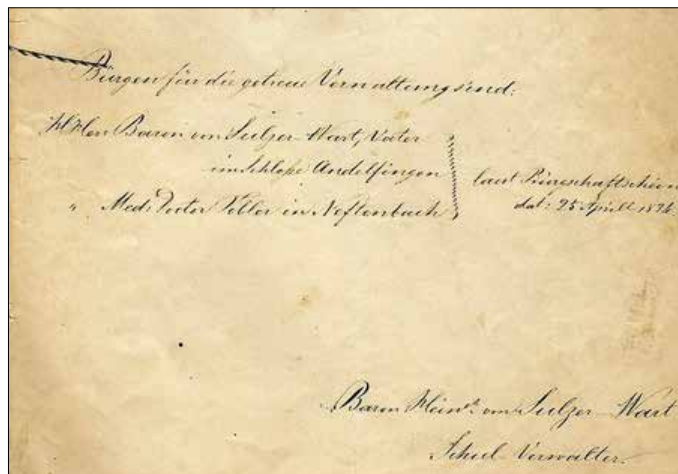 Bürgen für die getreue Verwaltung sind:
HHer Baron von Sulzer-Wart, Vater
im Schloße Andelfingen
" Med: Doctor Tobler in Neftenbach
laut Bürgschaftschein
dat: 25 April 1874.
Baron Heinr. von Sulzer-Wart
Schul-Verwalter.